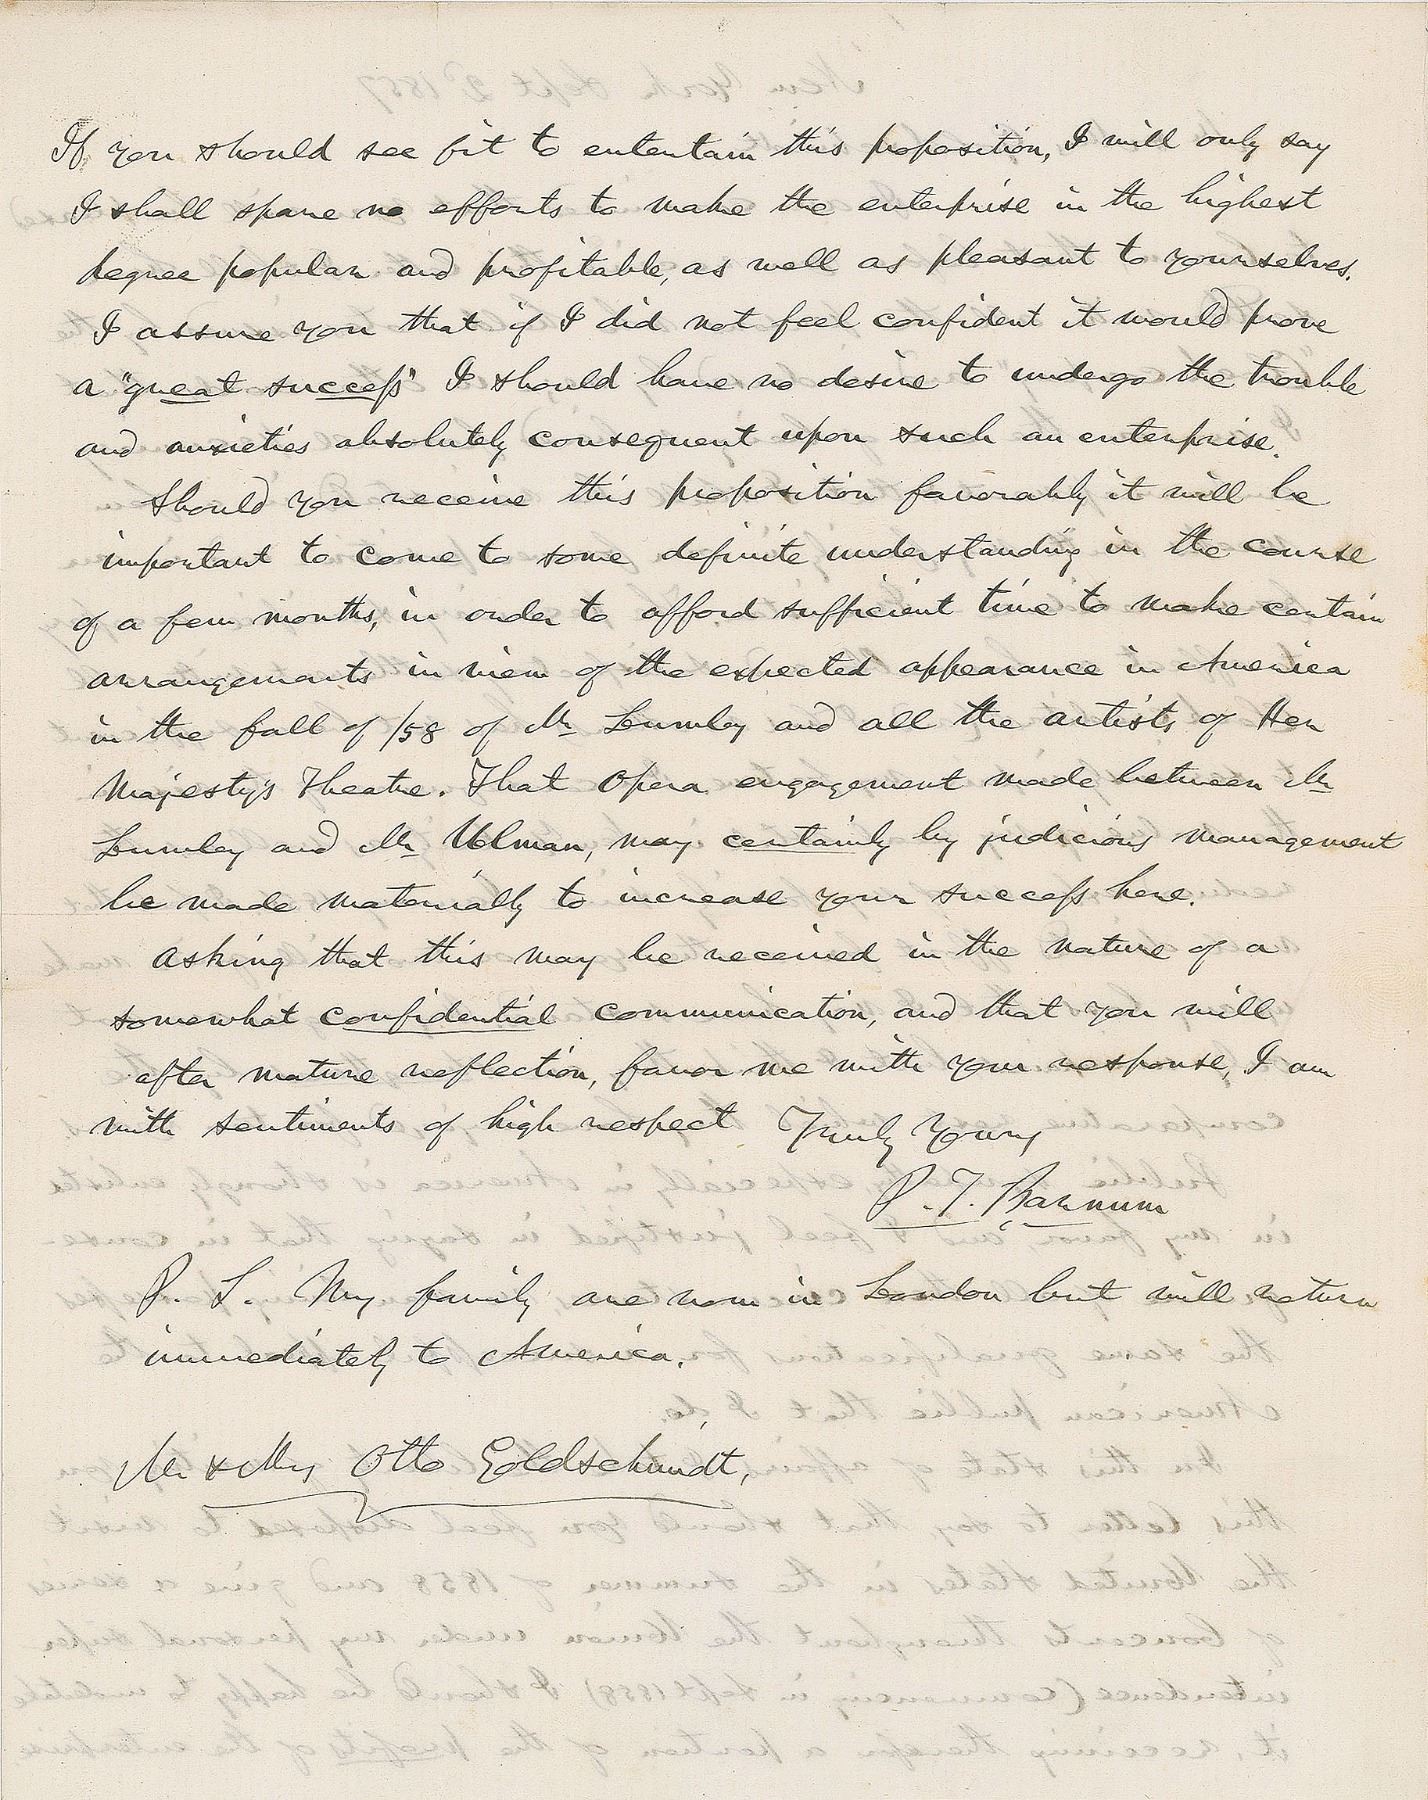 If you should see fit to entertain this proposition, I will only say
I shall spare no efforts to make the enterprise in the highest
degree popular and profitable, as well as pleasant to yourselves.
I assure you that if I did not feel confident it would prove
a "great success" I should have no desire to undergo the trouble
and anxieties absolutely consequent upon such an enterprise.
Should you receive this proposition favorably it will be
important to come to some definite understanding in the course
of a few months, in order to afford sufficient time to make certain
arrangements in view of the expected appearance in America
in the fall of /58 of Mr Lumley and all the artists of Her
Majesty's Theatre. That Opera engagement made between Mr
Lumley and Mr Ulman, may certainly by judicious management
be made materially to increase your success here.
Asking that this may be received in the nature of a
somewhat confidential communication, and that you will
after mature reflection, favor me with your response, I am
with sentiments of high respect Truly Yours
P. T. Barnum
P. S. My family are now in London but will return
immediately to America.
Mr & Mrs Otto Goldschmidt,